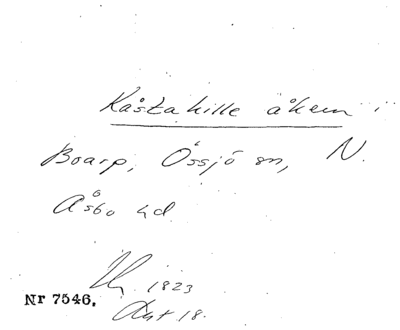 Kåstahille åkern i
Boarp, Össjö sn, N.
Åsbo hd
1823
Akt 18.
Nr 7546.